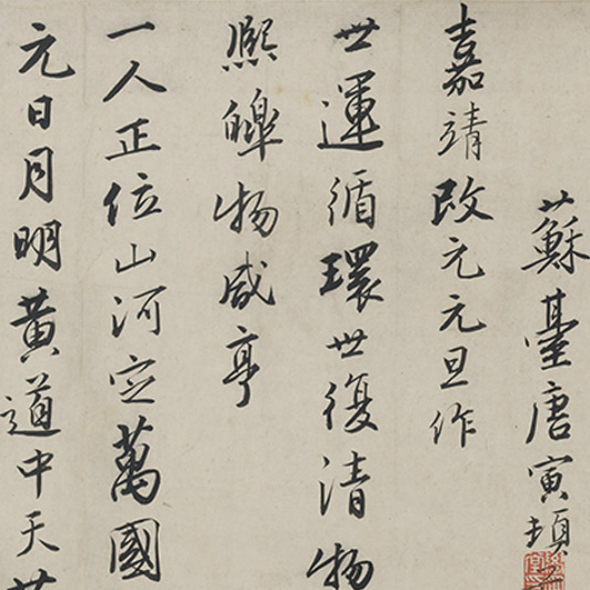 蘇臺唐寅頓
嘉靖改元元旦作
世運循環世復清物
熙皞物咸亨
一人正位山河定萬國
元日月明黃道中天